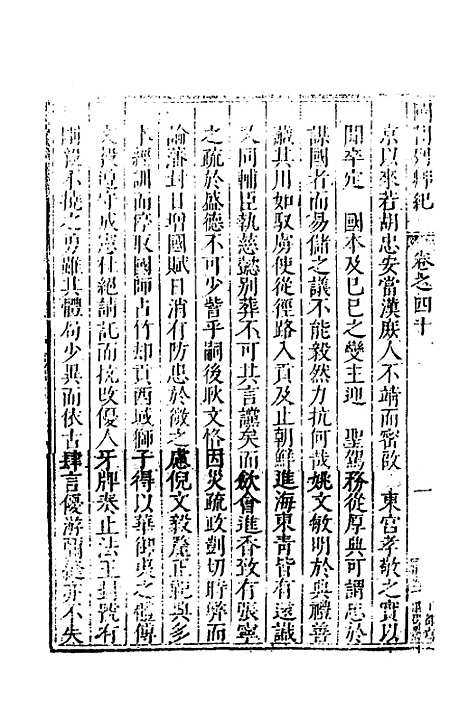 卷之四十
一
京以來若胡忠安當漢庶人不靖而密啟 東宮孝敬之實以
聞卒定 國本及巳巳之變主迎 聖駕務從厚典可謂忠於
謀國者而易儲之議不能毅然力抗何哉姚文敏明於典禮善
其川如馭虜使從徑路入貢及止朝鮮進海東青皆有遠識
又同輔臣執慈懿別葬不可其言讜矣而歛會進香致有張寧
之疏於盛德不可少訾乎嗣後耿文恪因災疏政剴切時弊而
論藩封日增國賦日消有防患於微之慮倪文毅釐正祀典多
經訓而停取國師占竹却貢西域獅子得以華御夷之體傅
文守成憲杜絕請託而抗改優人牙牌奏止法王號有
不撓之勇雖其體局少異而依古肆言優游亦不失